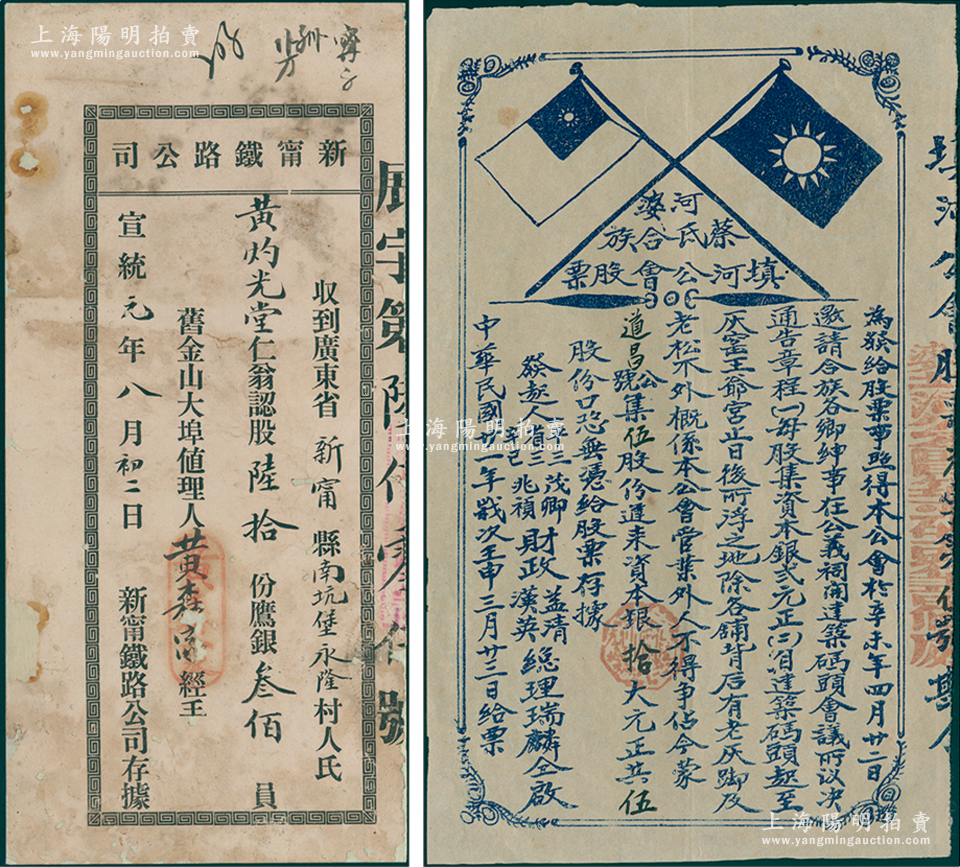 上海陽明拍賣
www.yangmingauction.com
新甯鐵路公司
收到廣東省新甯縣南坑堡永隆村人氏
黃灼光堂仁翁認股陸拾份鷹銀叁佰員
舊金山大埠値理人黃森 經手
宣統元年八月初二日 新甯鐵路公司存據
上海陽明拍賣
www.yangmingauction.com
河婆
蔡氏合族
填河公會股票
為發給股票事照得本公會於辛未年四月廿二日
邀請合族各鄉紳事在公義祠開建築碼頭會議所议决
通告章程(一)每股集資本銀弍元正(二)自建築碼頭起至
灰窑王爺宮止日後所浮之地除各舖背后有老灰脚及
老松不外概係本公會管業外人不得争佔今蒙
道昌公號集伍股份進来資本銀拾大元正共伍
股份口恐無憑給股票存據
發起人 道三 茂卿 兆禎 財政 益清 漢英 總理瑞麟仝啟
中華民國廿一年歲次壬申三月廿三日給票
上海陽明拍賣
www.yangmingauction.com